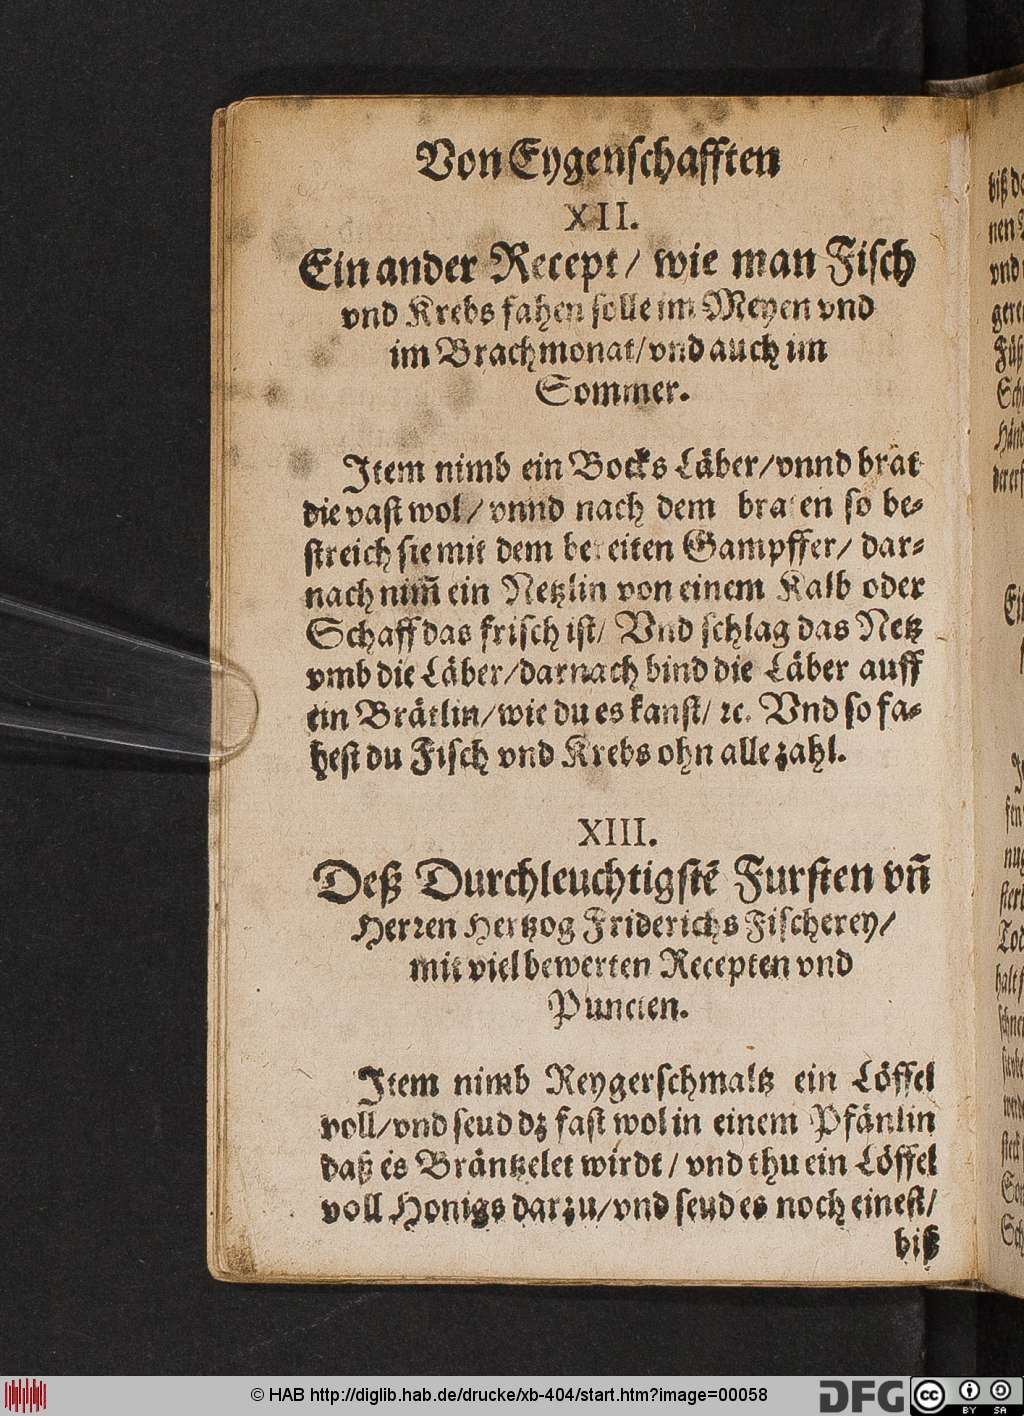 Von Eygenschafften
XII.
Ein ander Recept / wie man Fisch
vnd Krebs fahen solle im Meyen vnd
im Brachmonat / vnd auch im
Sommer.
Item nimb ein Bocks Läber / vnnd brat
die vast wol / vnnd nach dem braten so be-
streich sie mit dem bereiten Gampffer / dar-
nach nim̃ ein Netzlin von einem Kalb oder
Schaff das frisch ist / Vnd schlag das Netz
vmb die Läber / darnach bind die Läber auff
ein Brätlin / wie du es kanst / ꝛc. Vnd so fa-
hest du Fisch vnd Krebs ohn alle zahl.
XIII.
Deß Durchleuchtigstẽ Fursten vñ
Herꝛen Hertzog Friderichs Fischerey /
mit viel bewerten Recepten vnd
Puncten.
Item nimb Reygerschmaltz ein Löffel
voll / vnd seud dz fast wol in einem Pfänlin
daß es Bräntzelet wirdt / vnd thu ein Löffel
voll Honigs darzu / vnd seud es noch einest /
biß
biß
nen
vnd
Tod
© HAB http://diglib.hab.de/drucke/xb-404/start.htm?image=00058
DFG
cc
BY SA